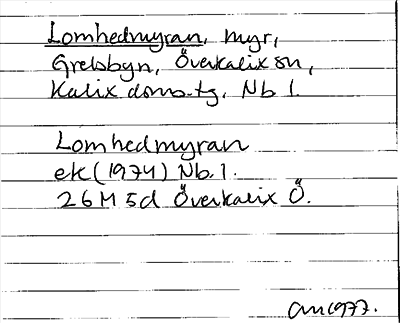 Lomhedmyran, myr,
Grelsbyn, Överkalix sn,
Kalix doms.tg, Nb l.
Lomhedmyran
ek (1974) Nb. l.
26 M 5d Överkalix Ö.
1977.